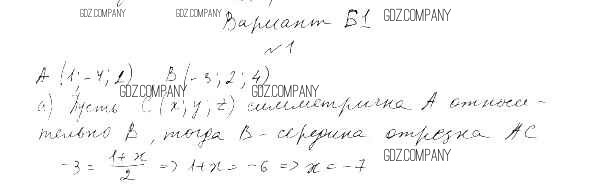 GDZ.COMPANY GDZ.COMPANY
Вариант Б1 GDZ.COMPANY
№1
A (1; -4; 2) B (-3; 2; 4)
GDZ.COMPANY GDZ.COMPANY
а) Пусть C (x; y; z) симметрична A относи-
тельно B, тогда B - середина отрезка AC
GDZ.COMPANY
-3 = \frac{1+x}{2} => 1+x = -6 => x = -7
GDZ.COMPANY